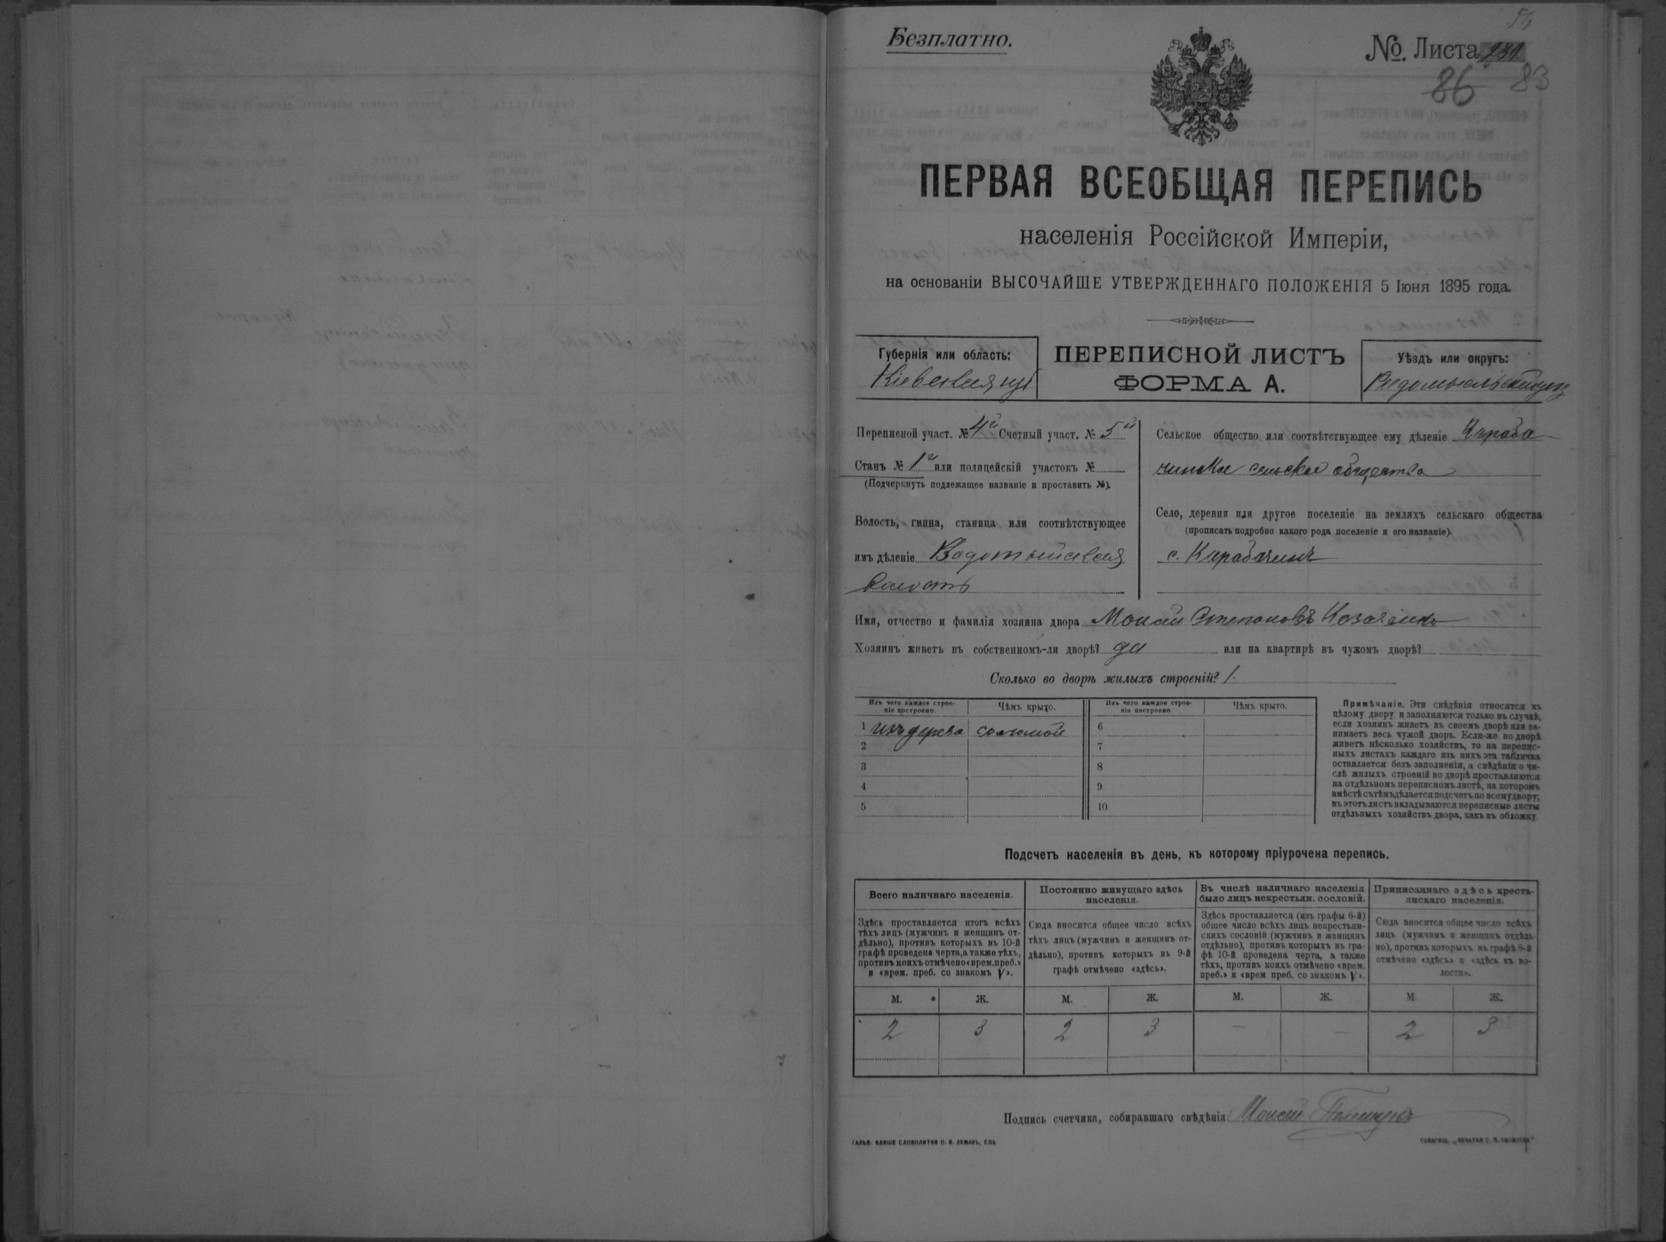 Безплатно.
№. Листа
86 83
ПЕРВАЯ ВСЕОБЩАЯ ПЕРЕПИСЬ
населенія Россійской Имперіи,
на основаніи ВЫСОЧАЙШЕ УТВЕРЖДЕННАГО ПОЛОЖЕНІЯ 5 Іюня 1895 года.
Губернія или область:
Кіевская губ
ПЕРЕПИСНОЙ ЛИСТЪ
ФОРМА А.
Уѣздъ или округъ:
Переписной участ. № 4й Счетный участ. № 5й
Станъ № 1й или полицейскій участокъ №
(Подчеркнуть подлежащее названіе и проставить №).
Волость, гмина, станица или соотвѣтствующее
имъ дѣленіе Водотыйская
волость
Сельское общество или соотвѣтствующее ему дѣленіе Караба-
сельское общество
Село, деревня или другое поселеніе на земляхъ сельскаго общества
(прописать подробно какого рода поселеніе и его названіе).
с. Карабачинъ
Имя, отчество и фамилія хозяина двора Моисей Степановъ Козаченко
Хозяинъ живетъ въ собственномъ-ли дворѣ? да или на квартирѣ въ чужомъ дворѣ?
Сколько во дворѣ жилыхъ строеній? 1
Изъ чего каждое строе-
ніе построено.
Чѣмъ крыто.
Изъ чего каждое строе-
ніе построено.
Чѣмъ крыто.
1 изъ дерева соломой 6
2 7
3 8
4 9
5 10
Примѣчаніе. Эти свѣдѣнія относятся къ
цѣлому двору и заполняются только въ случаѣ,
если хозяинъ живетъ въ своемъ дворѣ или за-
нимаетъ весь чужой дворъ. Если-же во дворѣ
живетъ нѣсколько хозяйствъ, то на перепис-
ныхъ листахъ каждаго изъ нихъ эта табличка
оставляется безъ заполненія, а свѣдѣнія о чи-
слѣ жилыхъ строеній во дворѣ проставляются
на отдѣльномъ переписномъ листѣ, на которомъ
вмѣстѣ съ тѣмъ дѣлается подсчетъ по всему двору;
въ этотъ листъ вкладываются переписные листы
отдѣльныхъ хозяйствъ двора, какъ въ обложку.
Подсчетъ населенія въ день, къ которому пріурочена перепись.
Всего наличнаго населенія.
Здѣсь проставляется итогъ всѣхъ
тѣхъ лицъ (мужчинъ и женщинъ от-
дѣльно), противъ которыхъ въ 10-й
графѣ проведена черта, а также тѣхъ,
противъ коихъ отмѣчено «врем. преб.»
и «врем. преб. со знакомъ V».
Постоянно живущаго здѣсь
населенія.
Сюда вносится общее число всѣхъ
тѣхъ лицъ (мужчинъ и женщинъ от-
дѣльно), противъ которыхъ въ 9-й
графѣ отмѣчено «здѣсь».
Въ числѣ наличнаго населенія
было лицъ некрестьян. сословій.
Здѣсь проставляется (изъ графы 6-й)
общее число всѣхъ лицъ некрестьян-
скихъ сословій (мужчинъ и женщинъ
отдѣльно), противъ которыхъ въ гра-
фѣ 10-й проведена черта, а также
тѣхъ, противъ коихъ отмѣчено «врем.
преб.» и «врем преб. со знакомъ V».
Приписаннаго здѣсь кресть-
янскаго населенія.
Сюда вносится общее число всѣхъ
лицъ (мужчинъ и женщинъ отдѣль-
но), противъ которыхъ въ графѣ 8-й
отмѣчено «здѣсь» и «здѣсь въ во-
лости».
М. Ж. М. Ж. М. Ж. М Ж.
2 3 2 3 — — 2 3
Подпись счетчика, собиравшаго свѣдѣнія Моисей